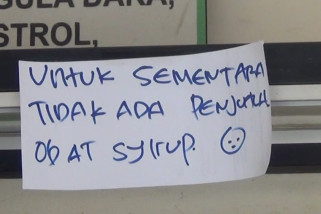 GULA DARA,
STROL,
UNTUK SEMENTARA
TIDAK ADA PENJUAL
OBAT SYIRUP.